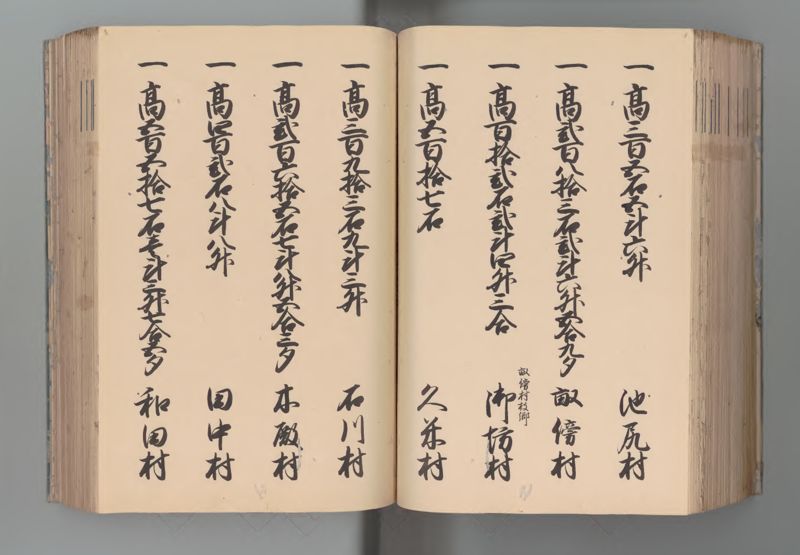 一 高三百五石五斗六升 池尻村
一 高弐百八拾三石弐斗六升五合九夕 畝傍村
畝傍村枝郷
一 高百拾弐石弐斗四升三合 御坊村
一 高五百拾七石 久米村
一 高三百九拾三石九斗三升 石川村
一 高弐百六拾五石七斗八升五合三夕 本殿村
一 高四百弐石八斗八升 田中村
一 高五百五拾七石壱斗三升七合五夕 和田村